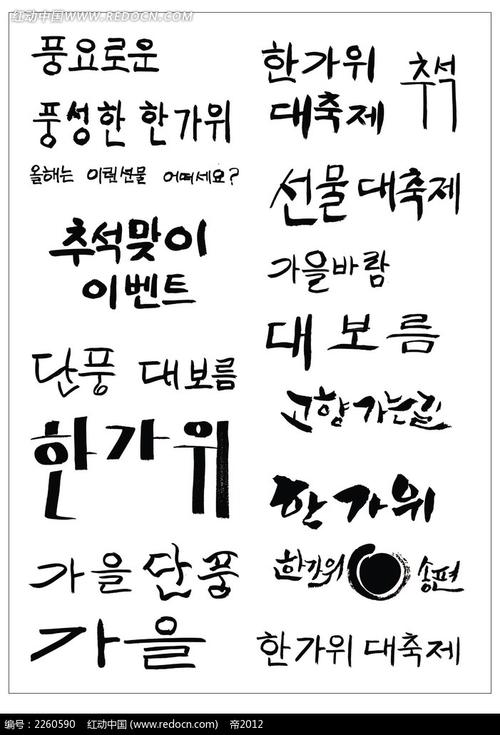 红动中国 WWW.REDOCN.COM
풍요로운
풍성한 한가위
올해는 이런선물 어떠세요?
추석맞이
이벤트
단풍 대보름
한가위
가을 단풍
가을
한가위
대축제
추석
선물대축제
가을바람
대보름
고향가는길
한가위
한가위 송편
한가위 대축제
编号：2260590 红动中国 (www.redocn.com) 帝2012